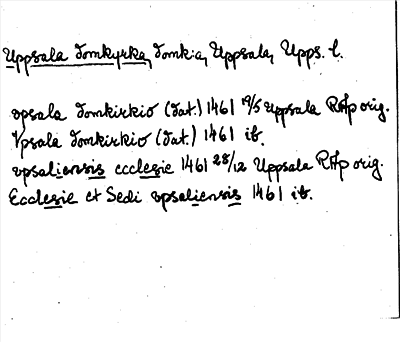 Uppsala domkyrka, domk:a, Uppsala, Upps. l.
vpsala domkirkio (dat.) 1461 19/5 Uppsala RAp orig.
Vpsala domkirkio (dat.) 1461 ib.
vpsaliensis ecclesie 1461 28/12 Uppsala RAp orig.
Ecclesie et Sedi vpsaliensis 1461 ib.